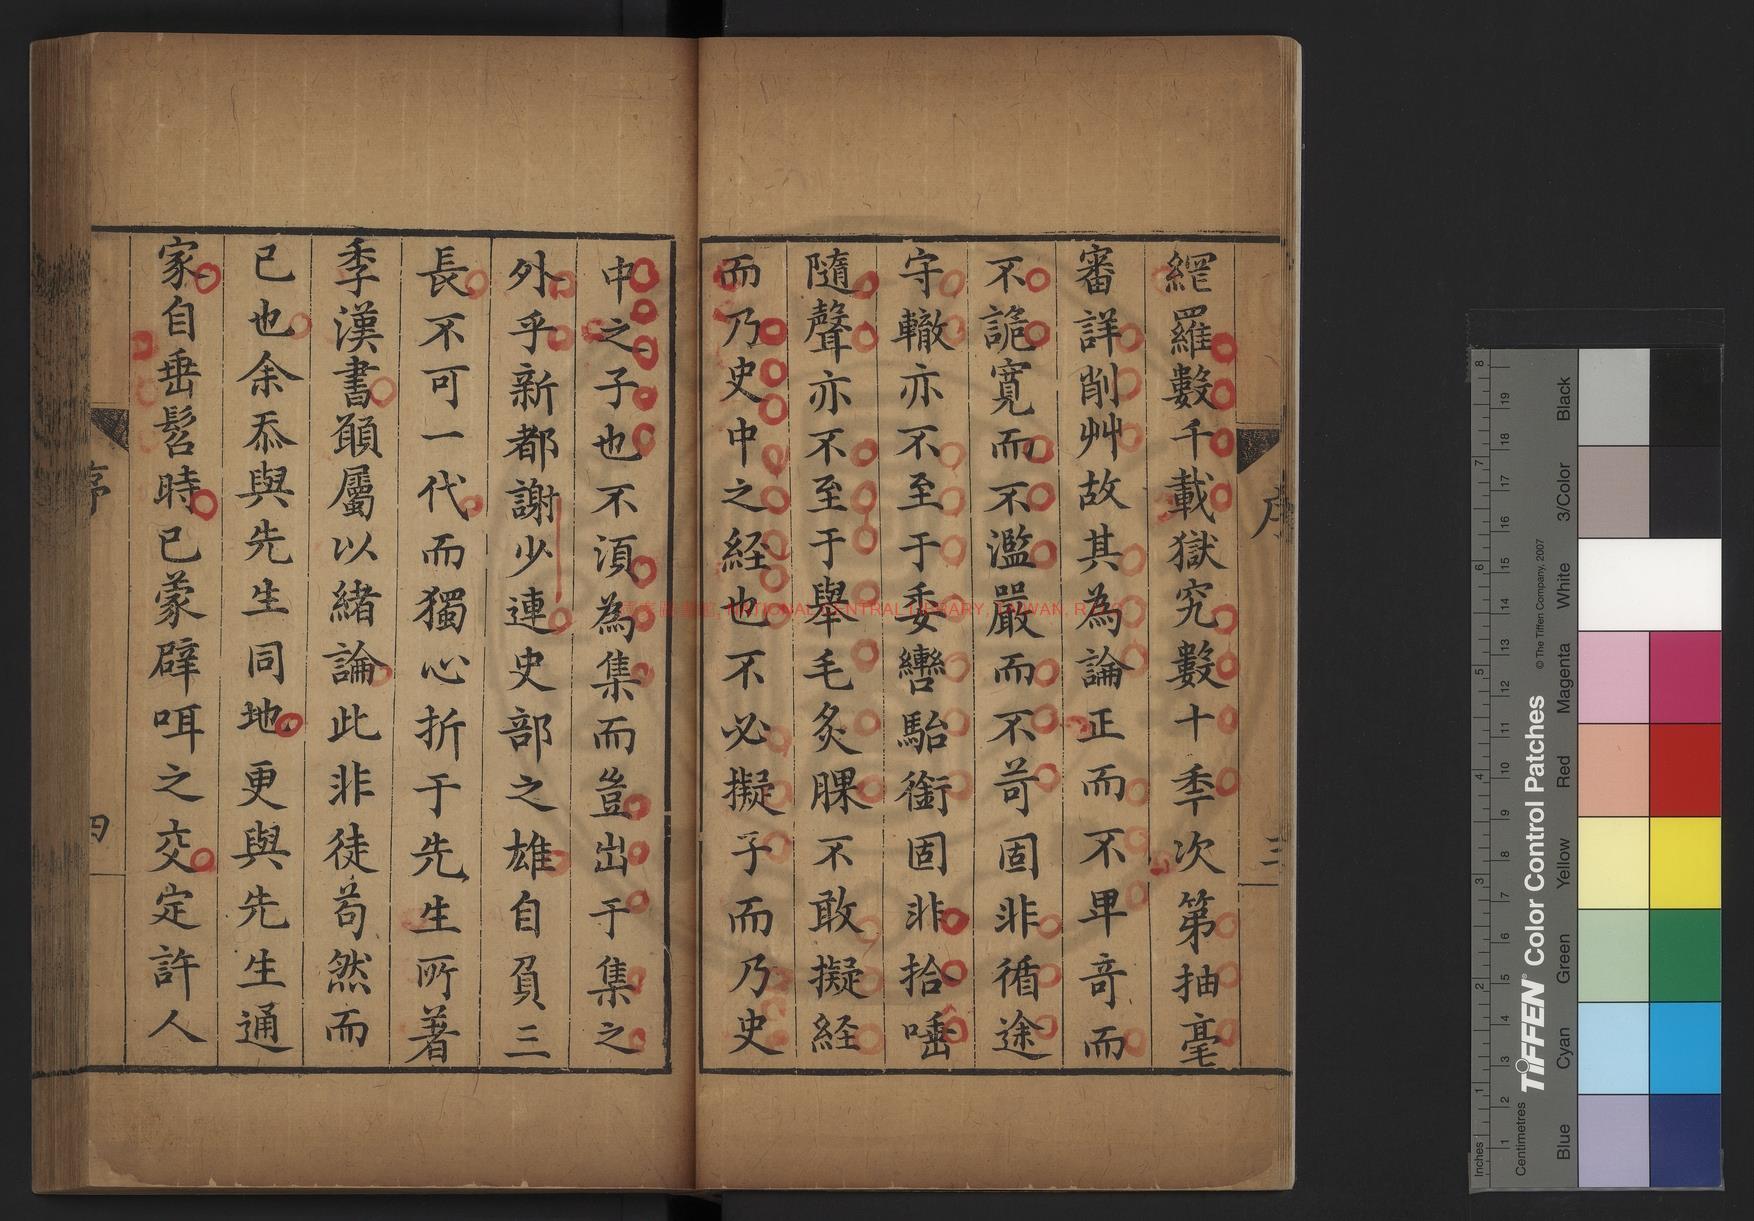 網羅數千載獄究數十秊次第抽毫
審詳削艸故其為論正而不卑竒而
不詭寛而不濫嚴而不苛固非循途
守轍亦不至于委轡駘銜固非拾唾
隨聲亦不至于舉毛炙踝不敢擬経
而乃史中之経也不必擬子而乃史
中之子也不湏為集而豈出于集之
外乎新都謝少連史部之雄自負三
長不可一代而獨心折于先生所著
季漢書頋屬以緒論此非徒苟然而
已也余忝與先生同地更與先生通
家自垂髫時已蒙辟咡之交定許人
序
三
序
四
NATIONAL CENTRAL LIBRARY, TAIWAN, R.O.C
TIFFEN® Color Control Patches
© The Tiffen Company, 2007
Inches
Centimetres
Blue
Cyan
Green
Yellow
Red
Magenta
White
3/Color
Black
1 2 3 4 5 6 7 8
1 2 3 4 5 6 7 8 9 10 11 12 13 14 15 16 17 18 19